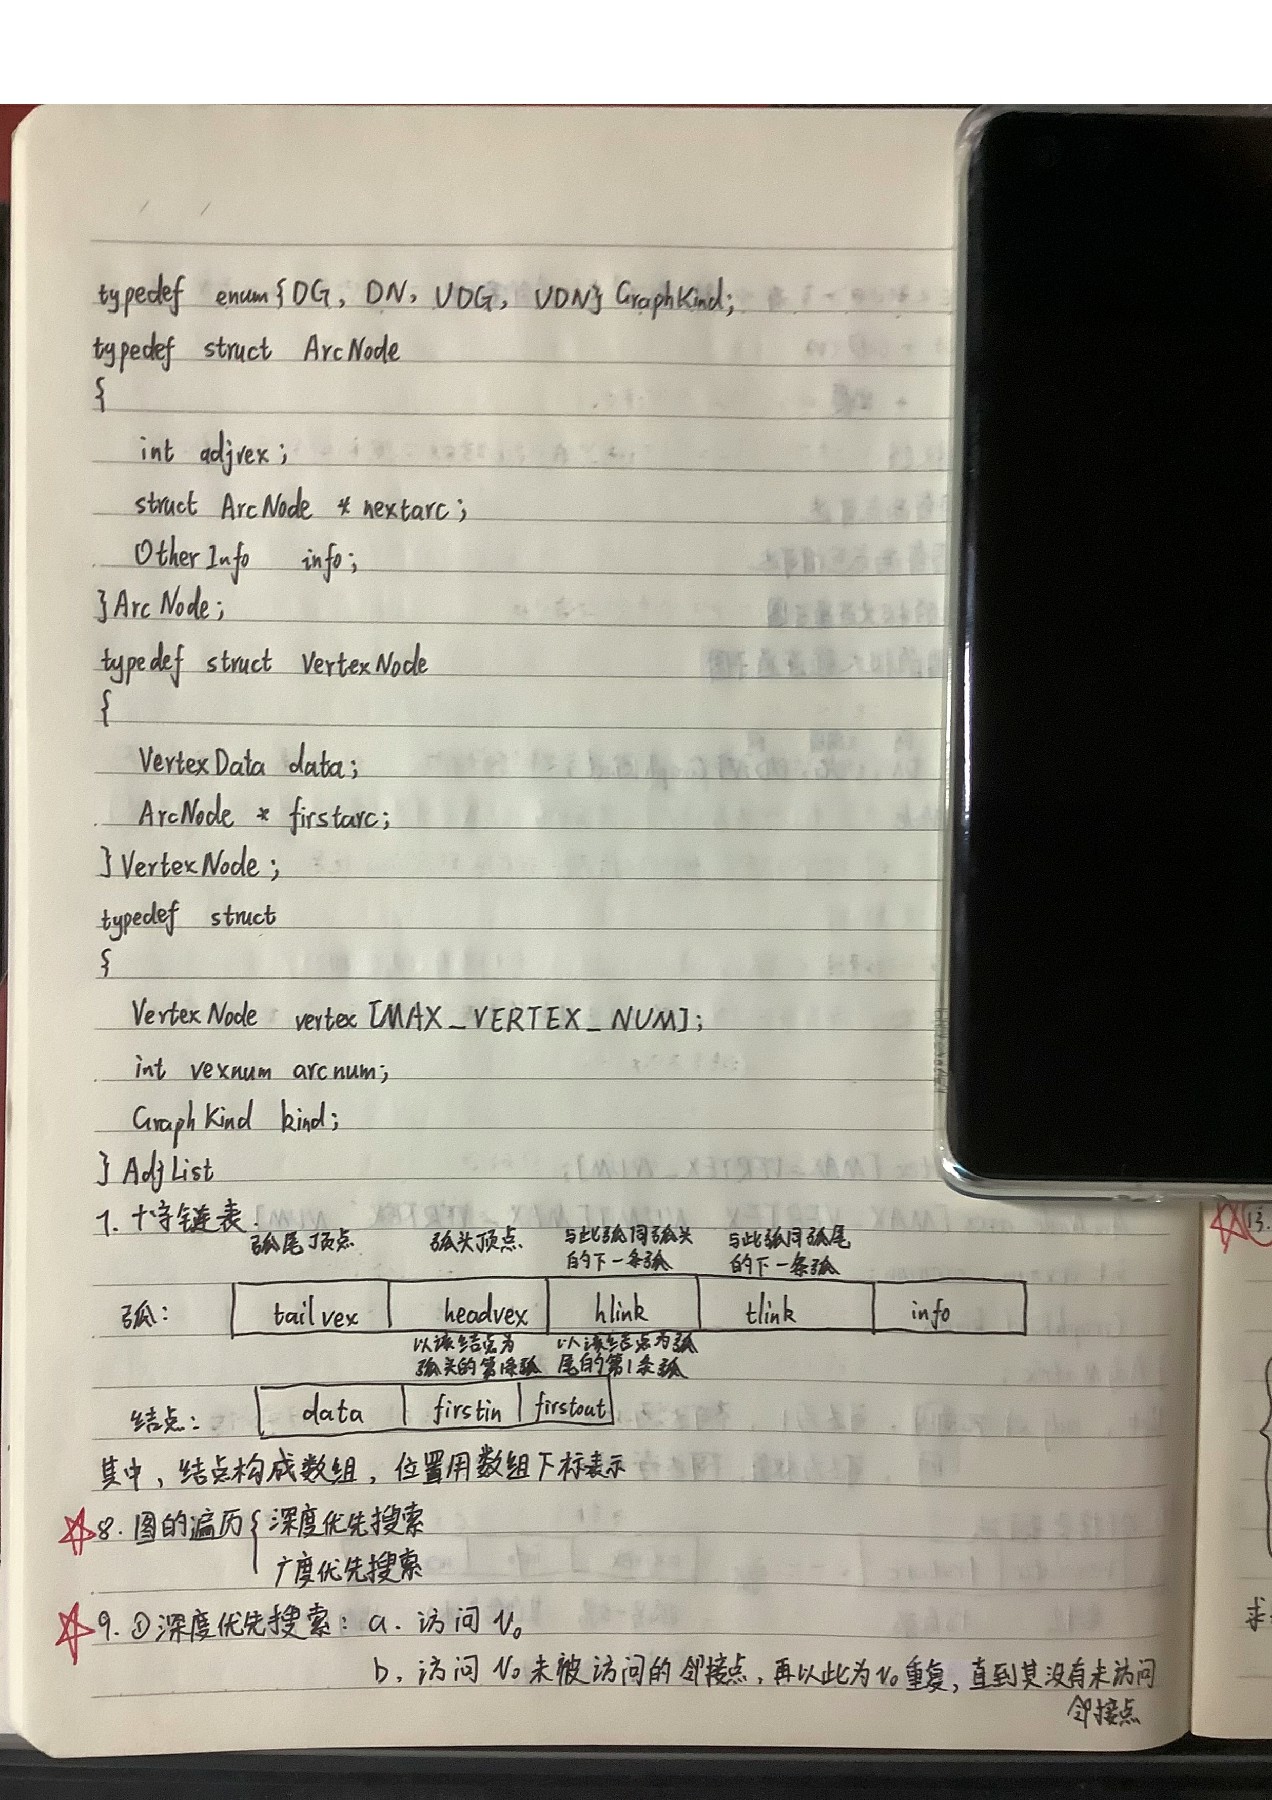 typedef enum{DG, DN, UDG, UDN} GraphKind;
typedef struct ArcNode
{
int adjvex;
struct ArcNode * nextarc;
OtherInfo info;
}ArcNode;
typedef struct VertexNode
{
VertexData data;
ArcNode * firstarc;
}VertexNode;
typedef struct
{
VertexNode vertex [MAX_VERTEX_NUM];
int vexnum arcnum;
GraphKind kind;
} AdjList
7. 十字链表.
弧尾顶点 弧头顶点 与此弧同弧头 与此弧同弧尾
的下一条弧 的下一条弧
弧: tailvex headvex hlink tlink info
以该结点为 以该结点为弧
弧头的第1条弧 尾的第1条弧
结点: data firstin firstout
其中, 结点构成数组, 位置用数组下标表示
☆8. 图的遍历{ 深度优先搜索
广度优先搜索
☆9. ①深度优先搜索: a. 访问 v₀
b. 访问 v₀ 未被访问的邻接点, 再以此为v₀重复, 直到其没有未访问
邻接点
13.
求